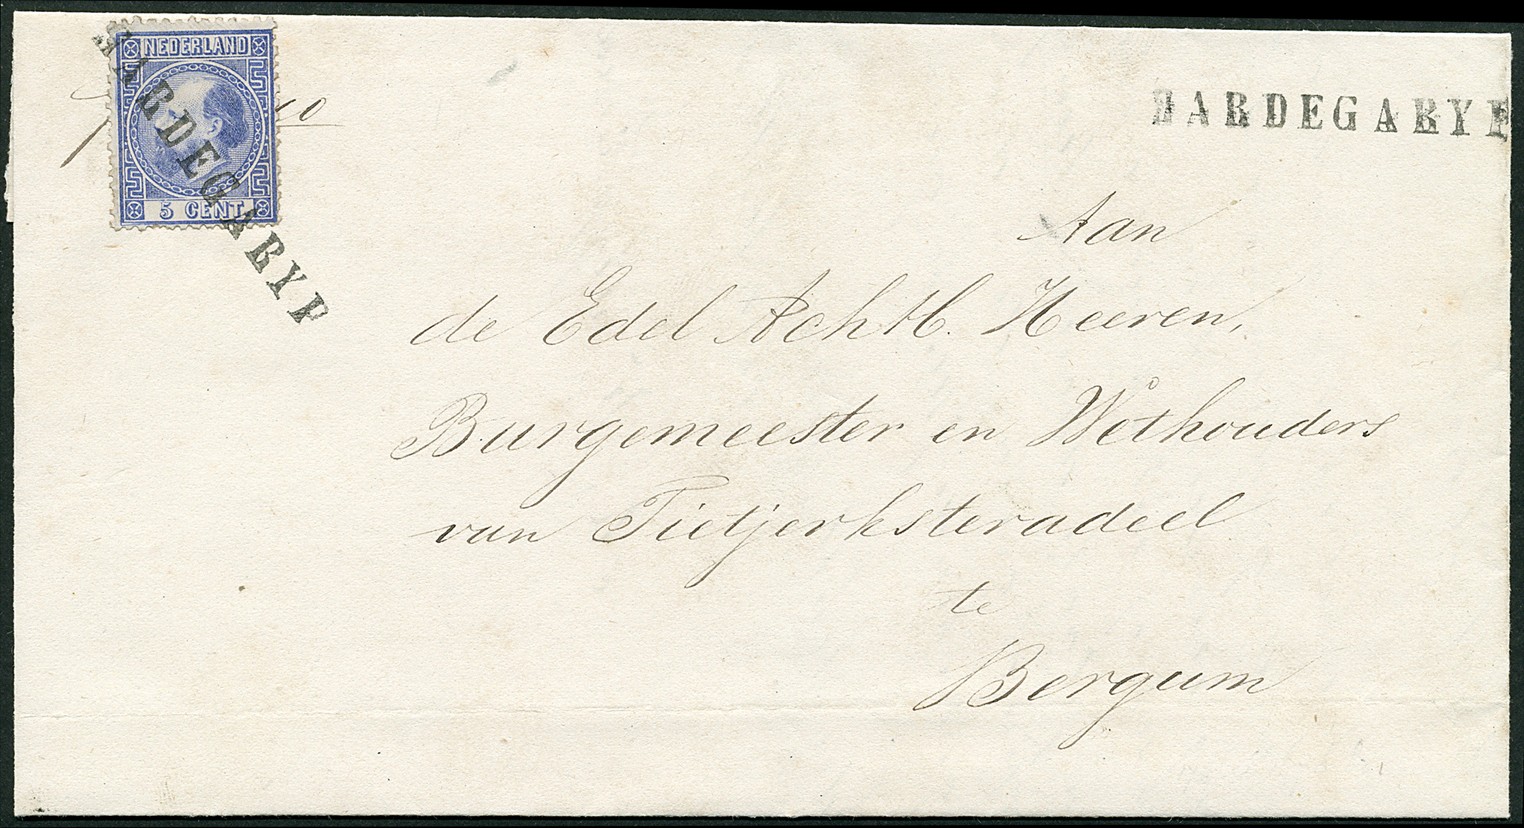 NEDERLAND
5 CENT
HARDEGARYP
HARDEGARYP
10
Aan
de Edel Achtb. Heeren,
Burgemeester en Wethouders
van Tietjerksteradeel
te
Bergum